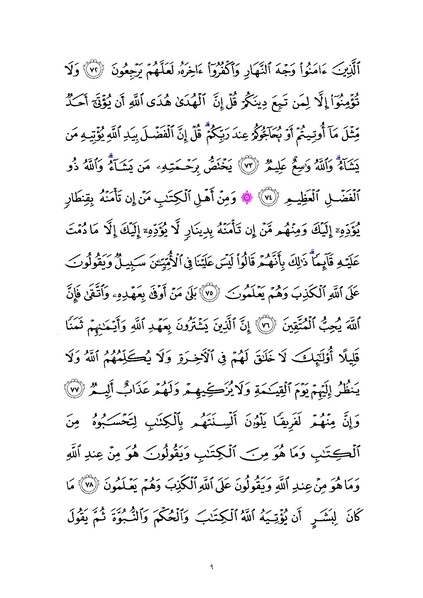 ٱلَّذِينَ ءَامَنُوا۟ وَجْهَ ٱلنَّهَارِ وَٱكْفُرُوٓا۟ ءَاخِرَهُۥ لَعَلَّهُمْ يَرْجِعُونَ ٧٢ وَلَا
تُؤْمِنُوٓا۟ إِلَّا لِمَن تَبِعَ دِينَكُمْ قُلْ إِنَّ ٱلْهُدَىٰ هُدَى ٱللَّهِ أَن يُؤْتَىٰٓ أَحَدٌ
مِّثْلَ مَآ أُوتِيتُمْ أَوْ يُحَآجُّوكُمْ عِندَ رَبِّكُمْ ۗ قُلْ إِنَّ ٱلْفَضْلَ بِيَدِ ٱللَّهِ يُؤْتِيهِ مَن
يَشَآءُ ۗ وَٱللَّهُ وَٰسِعٌ عَلِيمٌ ٧٣ يَخْتَصُّ بِرَحْمَتِهِۦ مَن يَشَآءُ ۗ وَٱللَّهُ ذُو
ٱلْفَضْلِ ٱلْعَظِيمِ ٧٤ ۞ وَمِنْ أَهْلِ ٱلْكِتَٰبِ مَنْ إِن تَأْمَنْهُ بِقِنطَارٍ
يُؤَدِّهِۦٓ إِلَيْكَ وَمِنْهُم مَّنْ إِن تَأْمَنْهُ بِدِينَارٍ لَّا يُؤَدِّهِۦٓ إِلَيْكَ إِلَّا مَا دُمْتَ
عَلَيْهِ قَآئِمًا ۗ ذَٰلِكَ بِأَنَّهُمْ قَالُوا۟ لَيْسَ عَلَيْنَا فِى ٱلْأُمِّيِّـۧنَ سَبِيلٌ وَيَقُولُونَ
عَلَى ٱللَّهِ ٱلْكَذِبَ وَهُمْ يَعْلَمُونَ ٧٥ بَلَىٰ مَنْ أَوْفَىٰ بِعَهْدِهِۦ وَٱتَّقَىٰ فَإِنَّ
ٱللَّهَ يُحِبُّ ٱلْمُتَّقِينَ ٧٦ إِنَّ ٱلَّذِينَ يَشْتَرُونَ بِعَهْدِ ٱللَّهِ وَأَيْمَٰنِهِمْ ثَمَنًا
قَلِيلًا أُو۟لَٰٓئِكَ لَا خَلَٰقَ لَهُمْ فِى ٱلْءَاخِرَةِ وَلَا يُكَلِّمُهُمُ ٱللَّهُ وَلَا
يَنظُرُ إِلَيْهِمْ يَوْمَ ٱلْقِيَٰمَةِ وَلَا يُزَكِّيهِمْ وَلَهُمْ عَذَابٌ أَلِيمٌ ٧٧
وَإِنَّ مِنْهُمْ لَفَرِيقًا يَلْوُۥنَ أَلْسِنَتَهُم بِٱلْكِتَٰبِ لِتَحْسَبُوهُ مِنَ
ٱلْكِتَٰبِ وَمَا هُوَ مِنَ ٱلْكِتَٰبِ وَيَقُولُونَ هُوَ مِنْ عِندِ ٱللَّهِ
وَمَا هُوَ مِنْ عِندِ ٱللَّهِ وَيَقُولُونَ عَلَى ٱللَّهِ ٱلْكَذِبَ وَهُمْ يَعْلَمُونَ ٧٨ مَا
كَانَ لِبَشَرٍ أَن يُؤْتِيَهُ ٱللَّهُ ٱلْكِتَٰبَ وَٱلْحُكْمَ وَٱلنُّبُوَّةَ ثُمَّ يَقُولَ
٩